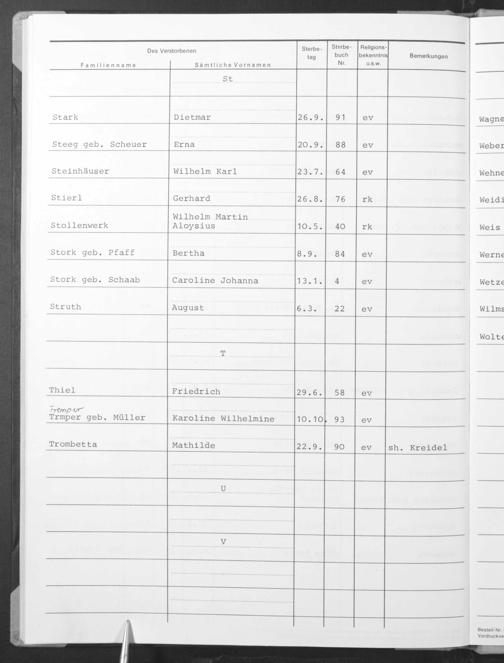 Des Verstorbenen Sterbe- Sterbe- Religions-
tag buch bekenntnis Bemerkungen
Familienname Sämtliche Vornamen Nr. u.s.w.
St
Stark Dietmar 26.9. 91 ev
Steeg geb. Scheuer Erna 20.9. 88 ev
Steinhäuser Wilhelm Karl 23.7. 64 ev
Stierl Gerhard 26.8. 76 rk
Wilhelm Martin
Stollenwerk Aloysius 10.5. 40 rk
Stork geb. Pfaff Bertha 8.9. 84 ev
Stork geb. Schaab Caroline Johanna 13.1. 4 ev
Struth August 6.3. 22 ev
T
Thiel Friedrich 29.6. 58 ev
Tremper
Trmper geb. Müller Karoline Wilhelmine 10.10. 93 ev
Trombetta Mathilde 22.9. 90 ev sh. Kreidel
U
V
Wagne
Weber
Wehne
Weidi
Weis
Werne
Wetze
Wilms
Wolte
Bestell-Nr.
Vordruckve